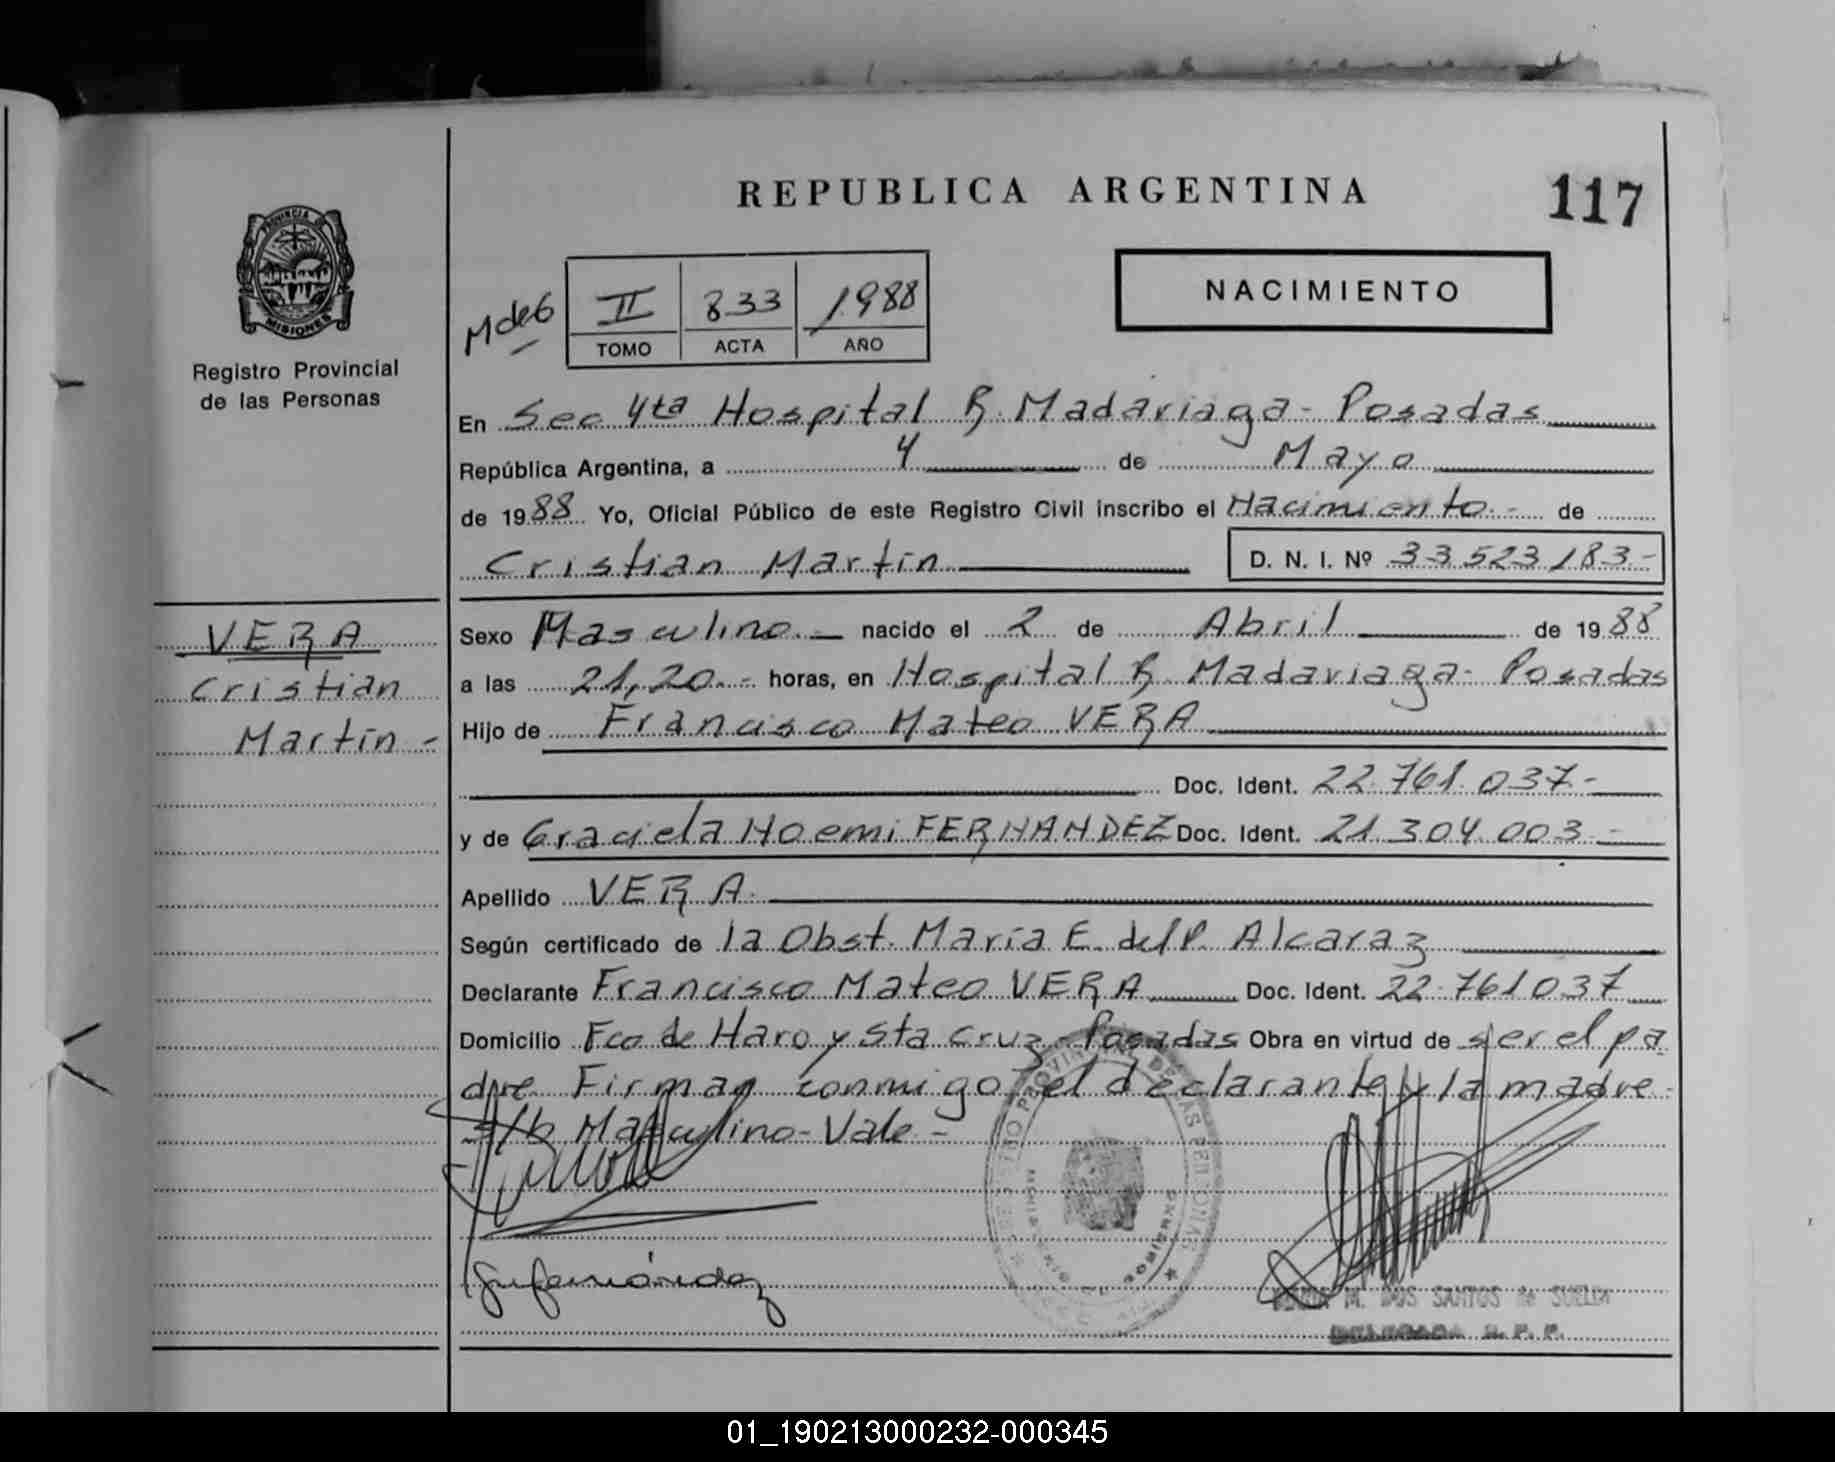 REPUBLICA ARGENTINA
117
PROVINCIA DE
MISIONES
Registro Provincial
de las Personas
NACIMIENTO
M de 6
II 833 1988
TOMO ACTA AÑO
En Sec 4ta Hospital R. Madariaga - Posadas
República Argentina, a 4 de Mayo
de 1988 Yo, Oficial Público de este Registro Civil inscribo el Nacimiento.- de
Cristian Martín D. N. I. Nº 33523183-
VERA
Cristian
Martín -
Sexo Masculino.- nacido el 2 de Abril de 1988
a las 21,20.- horas, en Hospital R. Madariaga - Posadas
Hijo de Francisco Mateo VERA
Doc. Ident. 22.761.037.-
y de Graciela Noemi FERNANDEZ Doc. Ident. 21.304.003.-
Apellido VERA.
Según certificado de la Obst. María E. del P. Alcaraz
Declarante Francisco Mateo VERA Doc. Ident. 22.761037
Domicilio Fco de Haro y Sta Cruz - Posadas Obra en virtud de ser el pa
dre. Firman conmigo, el declarante y la madre.
s/b Masculino - Vale -
M. DOS SANTOS de
R. P. P.
01_190213000232-000345